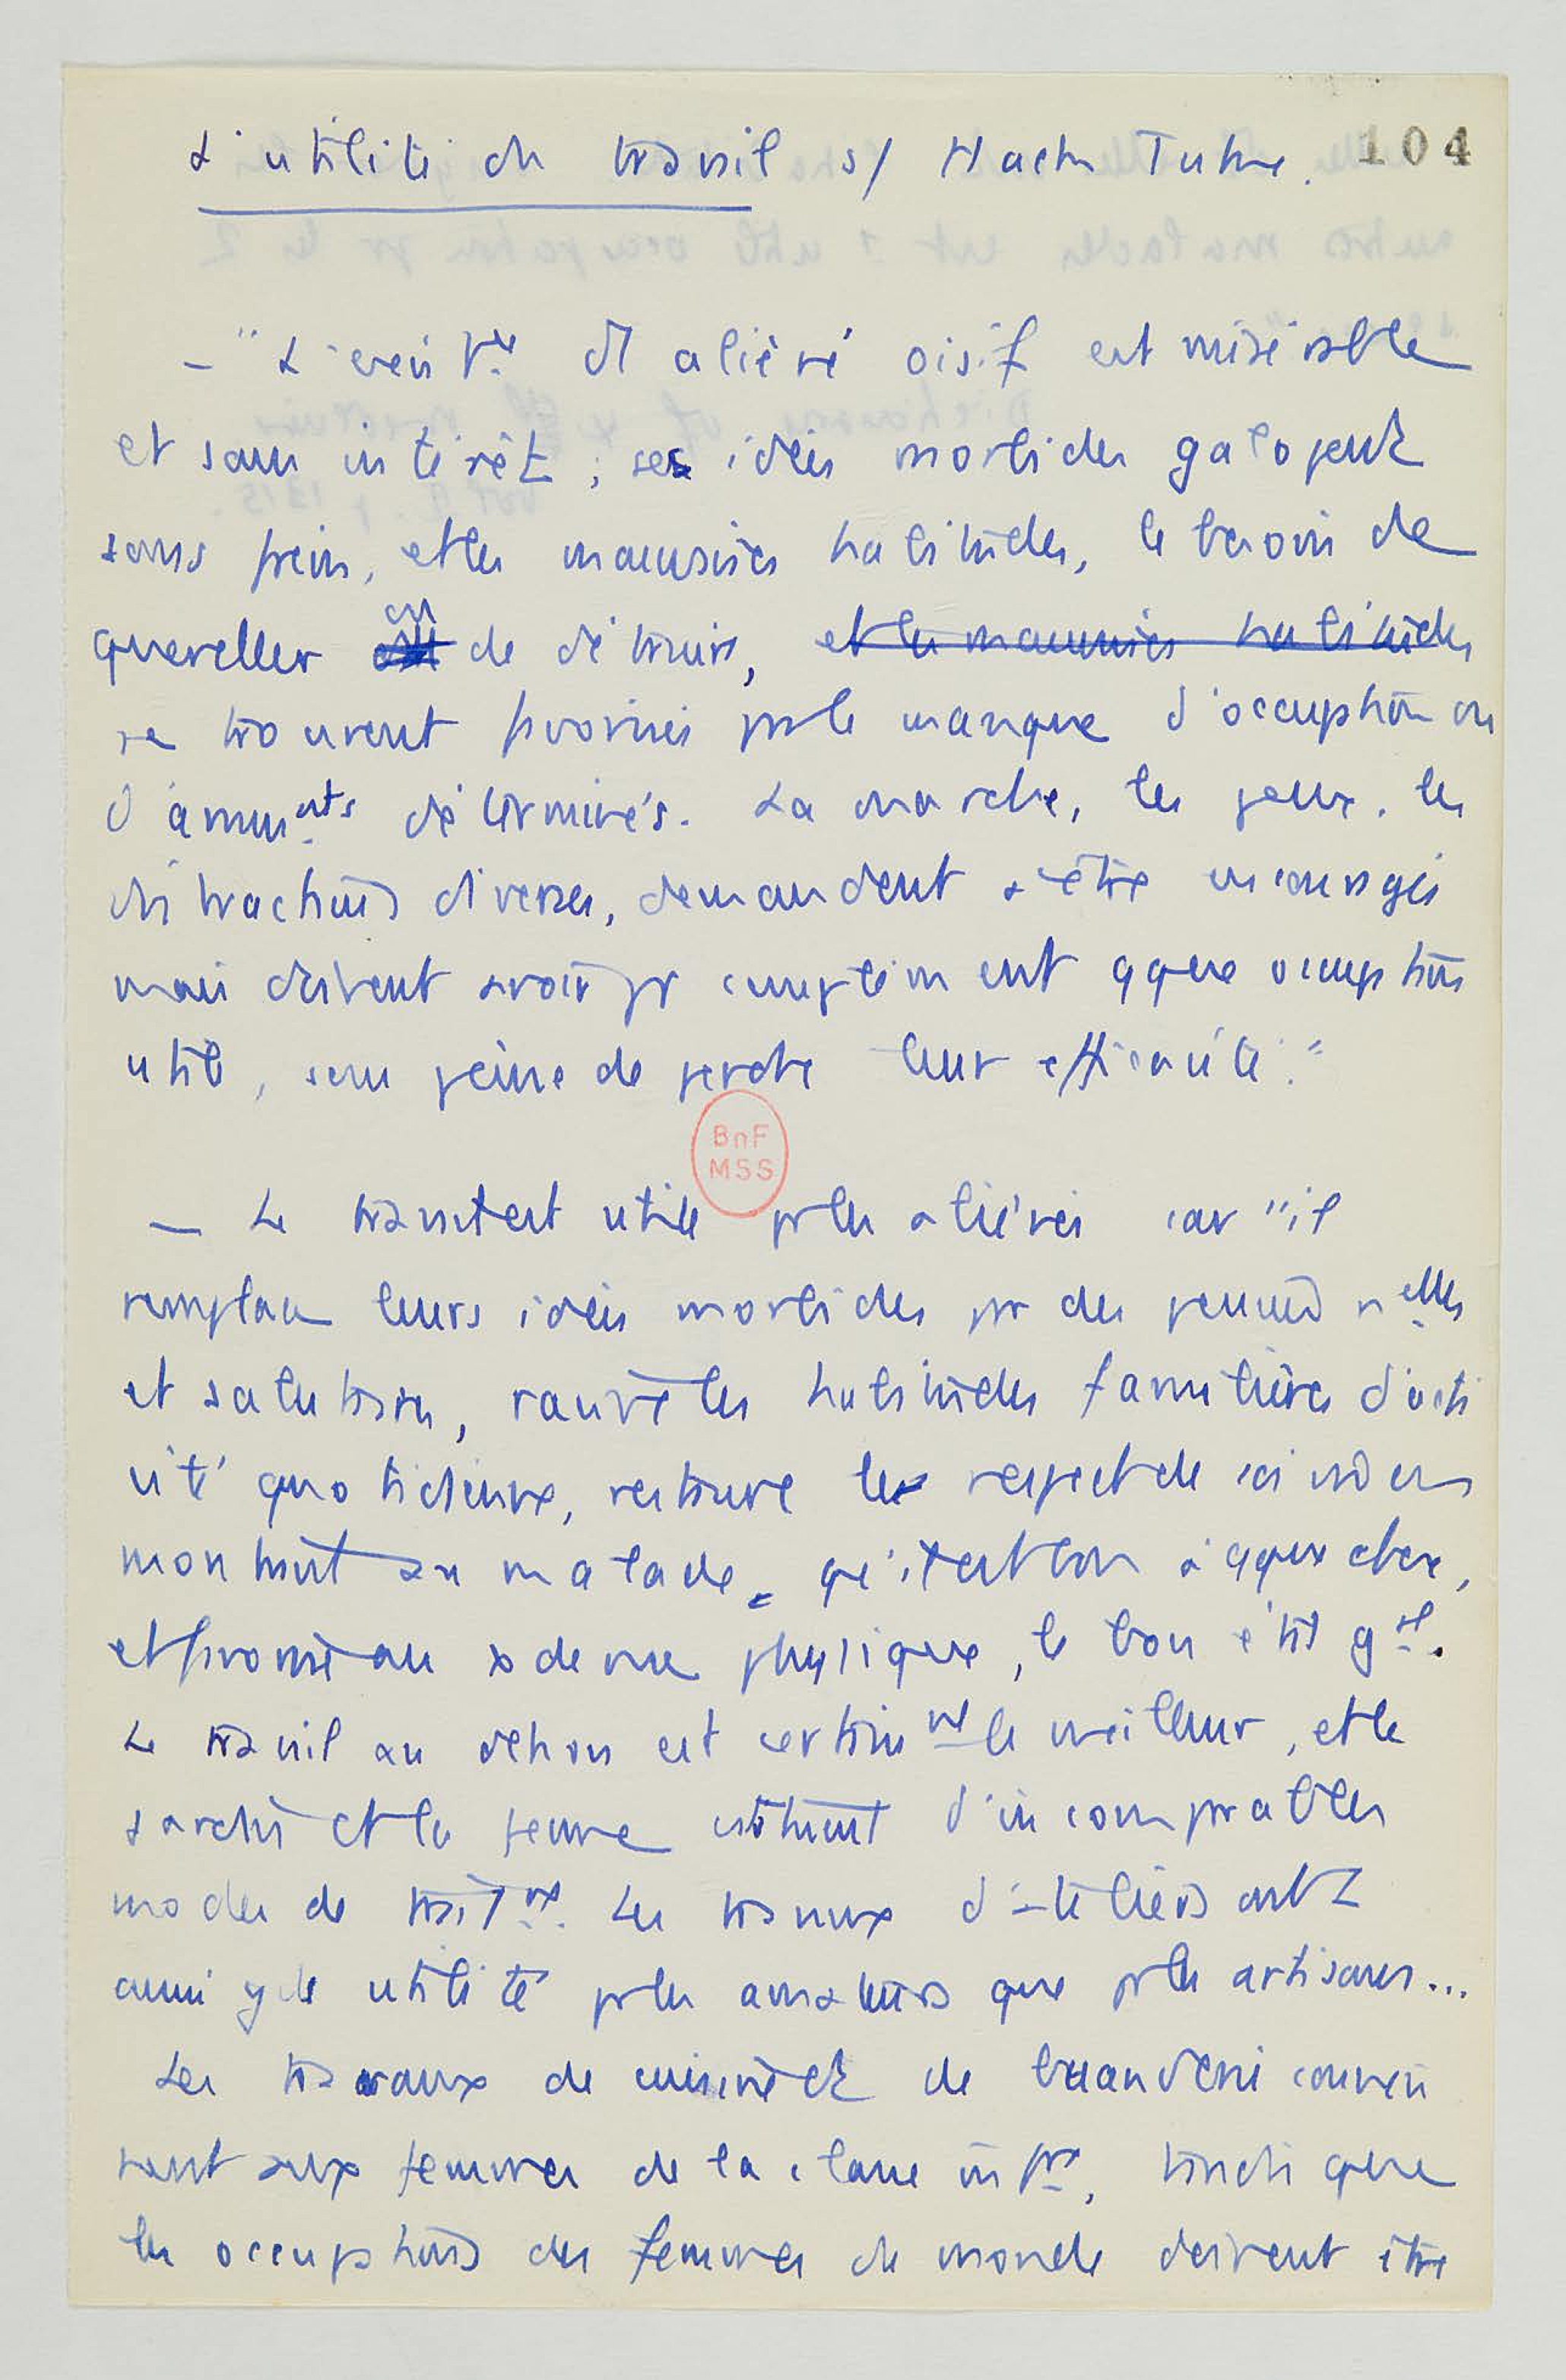 L'utilité du travail s/ Hack Tuke. 104
— "L'existce d'1 aliéné oisif est misérable
et sans intérêt ; ses idées morbides galopent
sans frein, et les mauvaises habitudes, le besoin de
quereller ou de détruire, et les mauvaises habitudes
se trouvent favorisés par le manque d'occupation ou
d'amusents déterminés. La marche, les jeux, les
distractions diverses, demandent à être encouragés
mais doivent avoir pr complément qque occupation
utile, sous peine de perdre leur efficacité."
BnF
MSS
— Le travail est utile pr les aliénés car "il
remplace leurs idées morbides par des pensées nelles
et salutaires, ravive les habitudes familières d'acti
vité quotidienne, restaure le respect de soi même en
montrant au malade qu'il est bon à qque chose,
et favorise au pt de vue physique, le bon état gal.
Le travail au dehors est certainemt le meilleur, et le
jardin et la ferme constituent d'incomparables
modes de traitmt. Les travaux d'ateliers ont 1
aussi gde utilité pr les amateurs que pr les artisans...
Les travaux de cuisine et de buanderie convien
nent aux femmes de la classe infre, tandis que
les occupations des femmes du monde doivent être